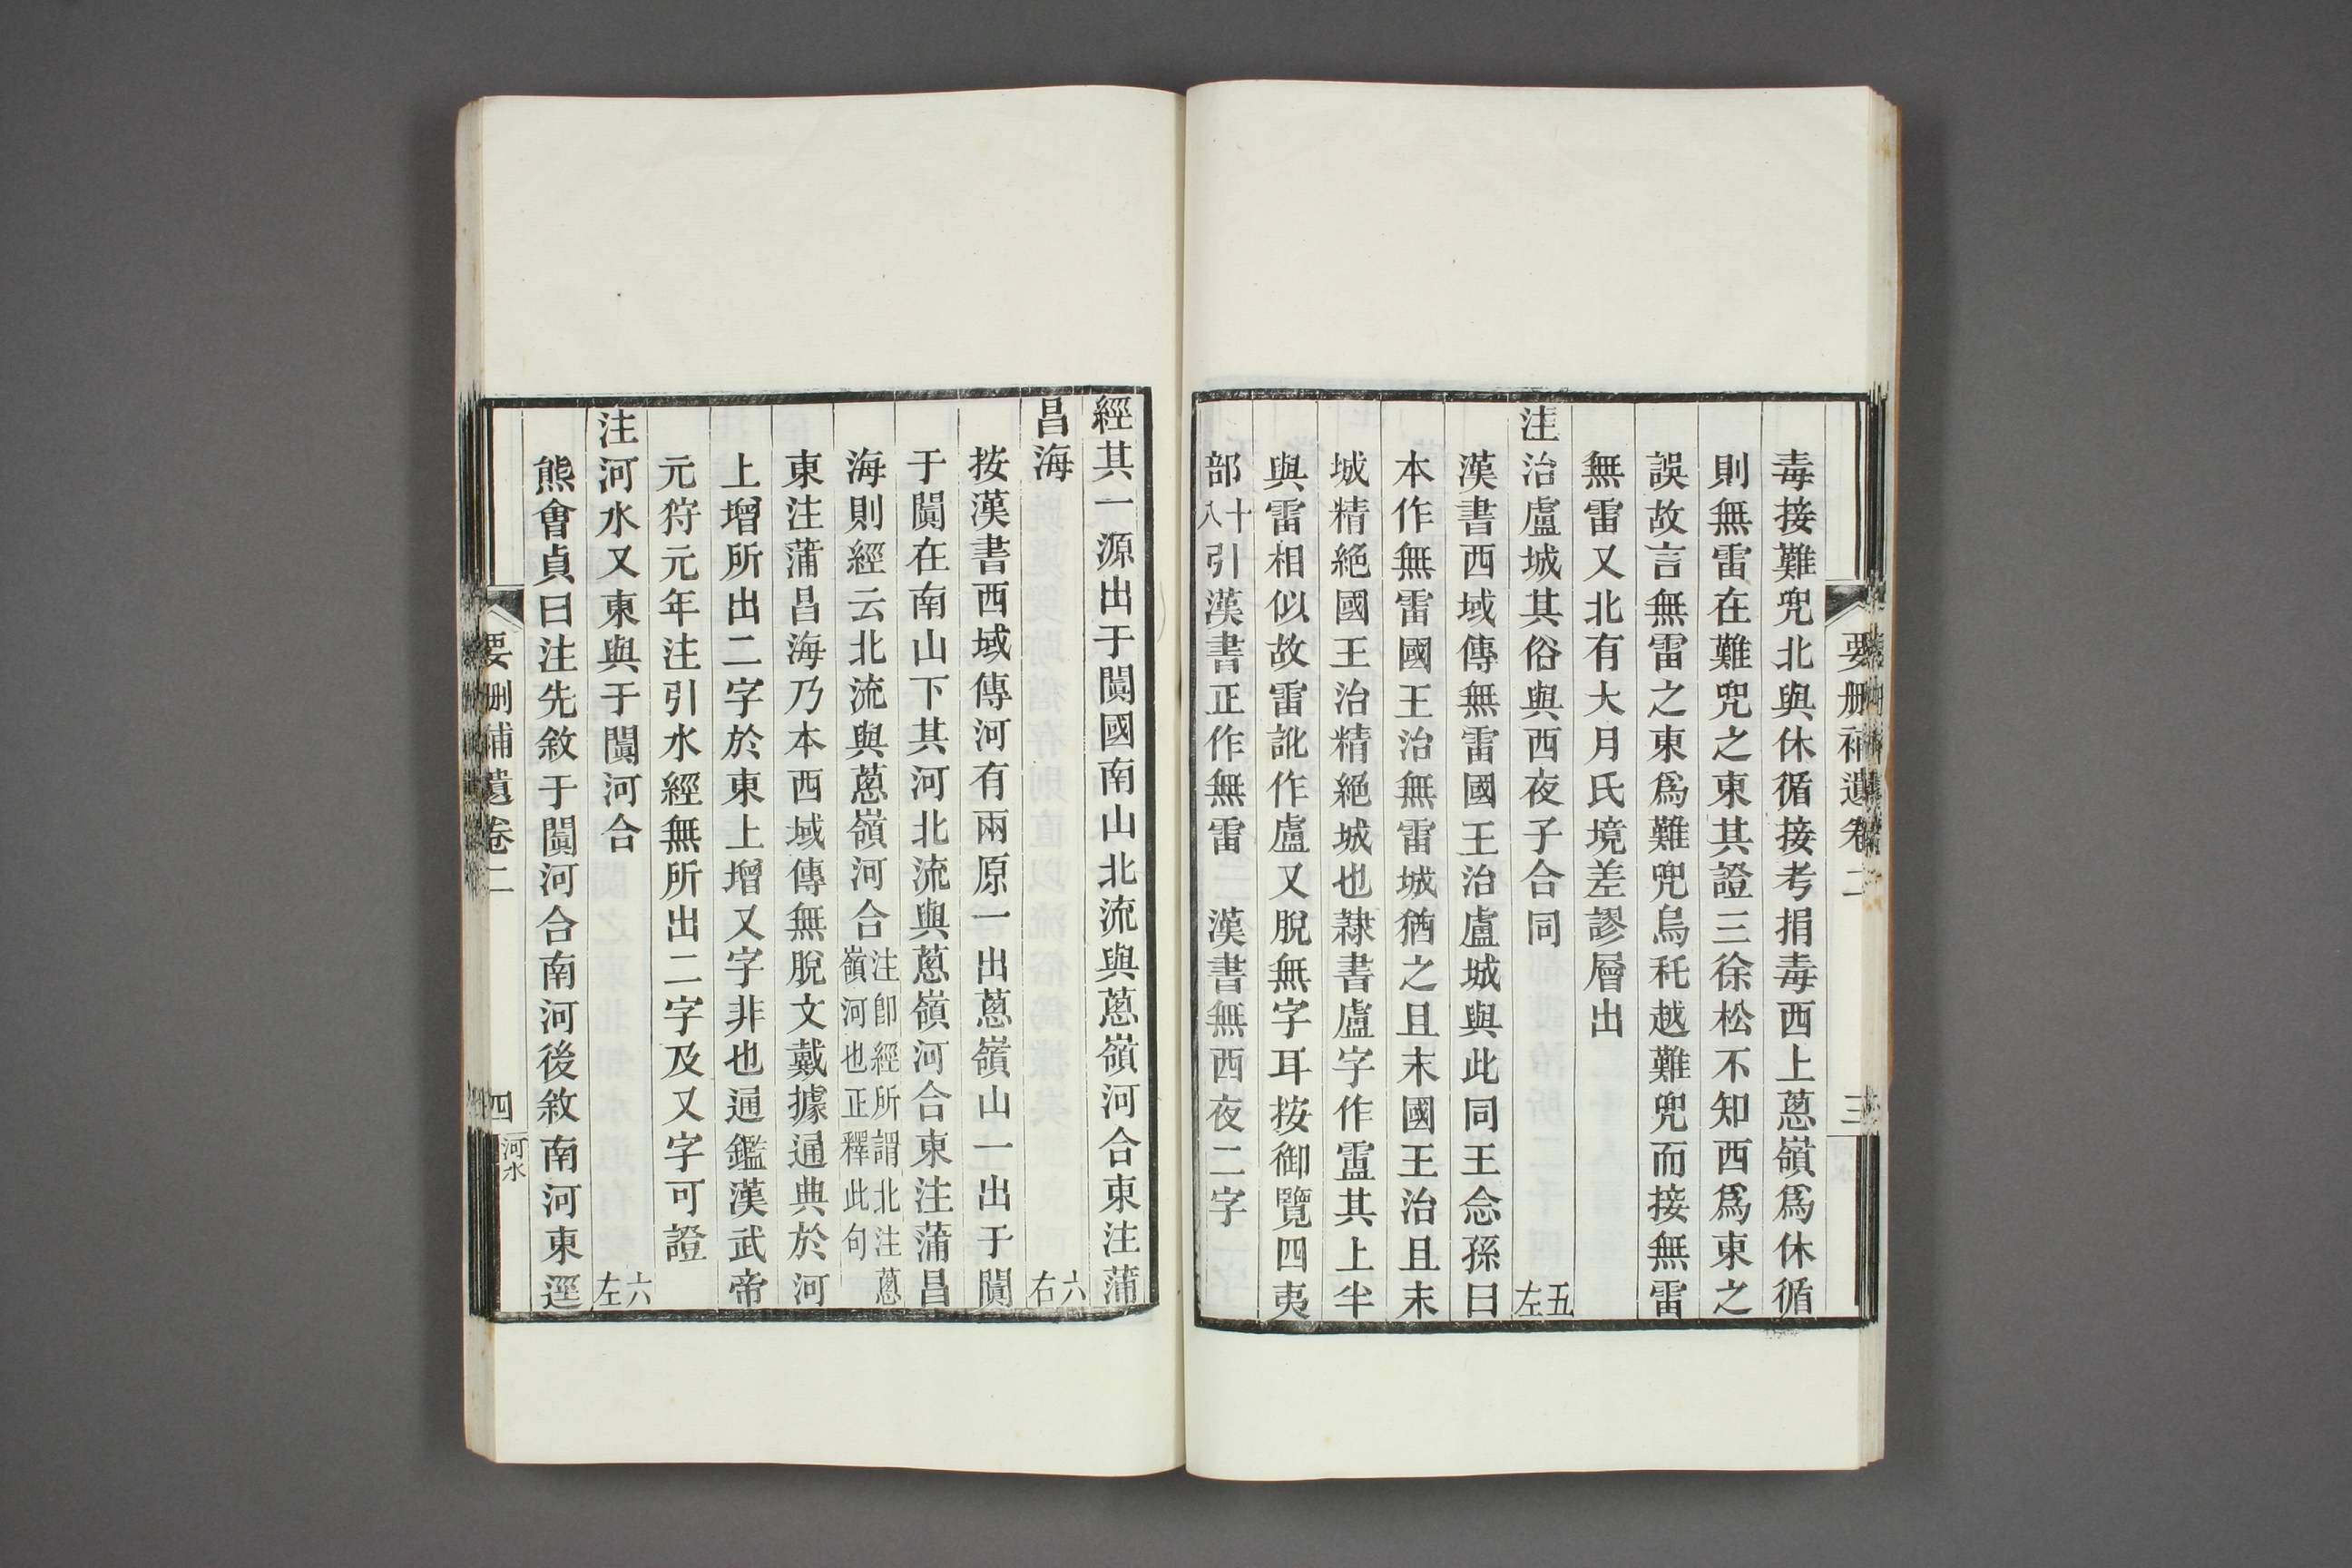 要删補遺卷二
三
毒接難兜北與休循接考捐毒西上蔥嶺爲休循
則無雷在難兜之東其證三徐松不知西爲東之
誤故言無雷之東爲難兜烏秅越難兜而接無雷
無雷又北有大月氏境差謬層出
注治盧城其俗與西夜子合同 五左
漢書西域傳無雷國王治盧城與此同王念孫曰
本作無雷國王治無雷城猶之且末國王治且末
城精絕國王治精絕城也隷書盧字作䀇其上半
與雷相似故雷訛作盧又脫無字耳按御覽四夷
部十八引漢書正作無雷 漢書無西夜二字
經其一源出于闐國南山北流與蔥嶺河合東注蒲
昌海 六右
按漢書西域傳河有兩原一出蔥嶺山一出于闐
于闐在南山下其河北流與蔥嶺河合東注蒲昌
海則經云北流與蔥嶺河合注卽經所謂北注蔥嶺河也正釋此句
東注蒲昌海乃本西域傳無脫文戴據通典於河
上增所出二字於東上增又字非也通鑑漢武帝
元狩元年注引水經無所出二字及又字可證
注河水又東與于闐河合 六左
熊會貞曰注先敘于闐河合南河後敘南河東逕
要删補遺卷二
四
河水